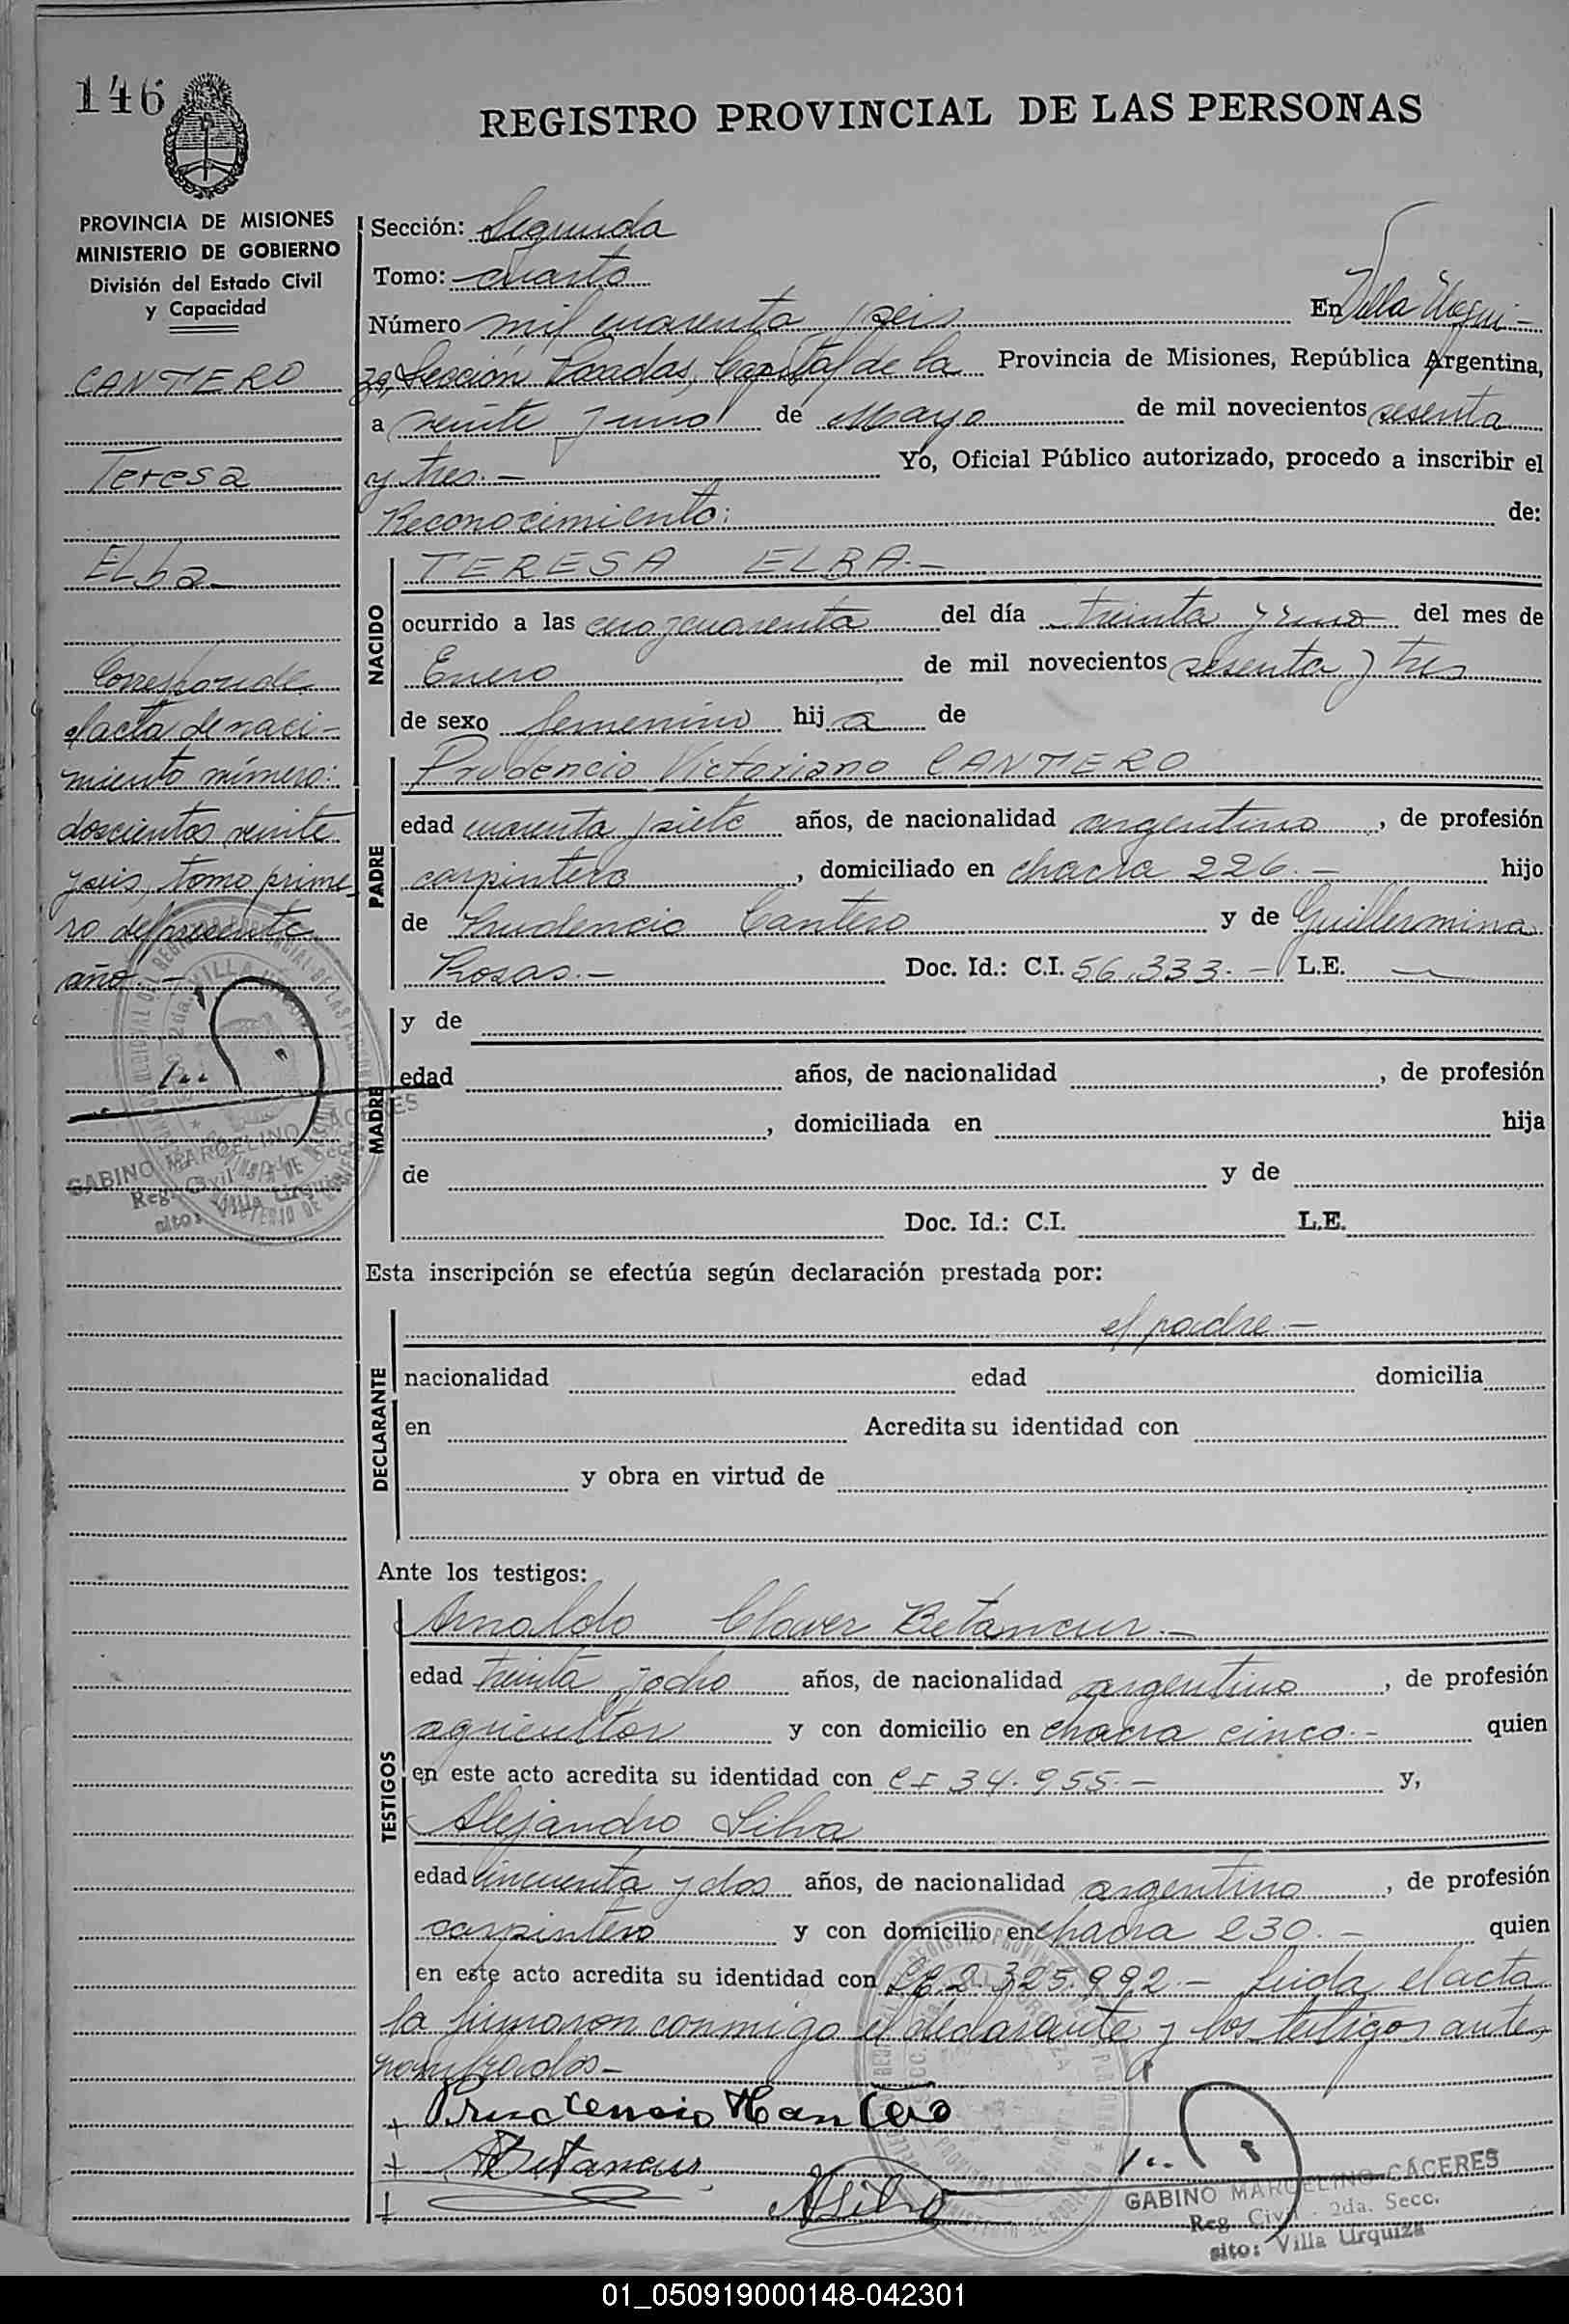 146
REGISTRO PROVINCIAL DE LAS PERSONAS
PROVINCIA DE MISIONES
MINISTERIO DE GOBIERNO
División del Estado Civil
y Capacidad
CANTERO
Teresa
Elba
Corresponde
el acta de naci-
miento número:
doscientos veinte
y seis, tomo prime-
ro del presente
año.-
GABINO MARCELINO CACERES
Reg. Civil 2da. Secc.
sito: Villa Urquiza
Sección: Segunda
Tomo: cuarto
Número mil cuarenta y seis En Villa Urqui-
za, Sección Posadas, Capital de la Provincia de Misiones, República Argentina,
a veinte y uno de Mayo de mil novecientos sesenta
y tres.- Yo, Oficial Público autorizado, procedo a inscribir el
Reconocimiento: de:
NACIDO
TERESA ELBA.-
ocurrido a las cero y cuarenta del día treinta y uno del mes de
Enero de mil novecientos sesenta y tres
de sexo femenino hij a de
PADRE
Prudencio Victoriano CANTERO
edad cuarenta y siete años, de nacionalidad argentino, de profesión
carpintero, domiciliado en chacra 226.- hijo
de Prudencio Cantero y de Guillermina
Rosas.- Doc. Id.: C.I. 56.333.- L.E. —
MADRE
y de
edad años, de nacionalidad , de profesión
, domiciliada en hija
de y de
Doc. Id.: C.I. L.E.
Esta inscripción se efectúa según declaración prestada por:
DECLARANTE
el padre.-
nacionalidad edad domicilia
en Acredita su identidad con
y obra en virtud de
Ante los testigos:
TESTIGOS
Arnaldo Clover Betancur.-
edad treinta y ocho años, de nacionalidad argentino, de profesión
agricultor y con domicilio en chacra cinco.- quien
en este acto acredita su identidad con CI 34.955.- y,
Alejandro Silva
edad cincuenta y dos años, de nacionalidad argentino, de profesión
carpintero y con domicilio en chacra 230.- quien
en este acto acredita su identidad con 2.325.992.- Leida el acta
la firmaron conmigo el declarante y los testigos ante
nombrados-
+ Prudencio Cantero
+ ABetancur
+ ASilva
GABINO MARCELINO CACERES
Reg. Civil - 2da. Secc.
sito: Villa Urquiza
01_050919000148-042301